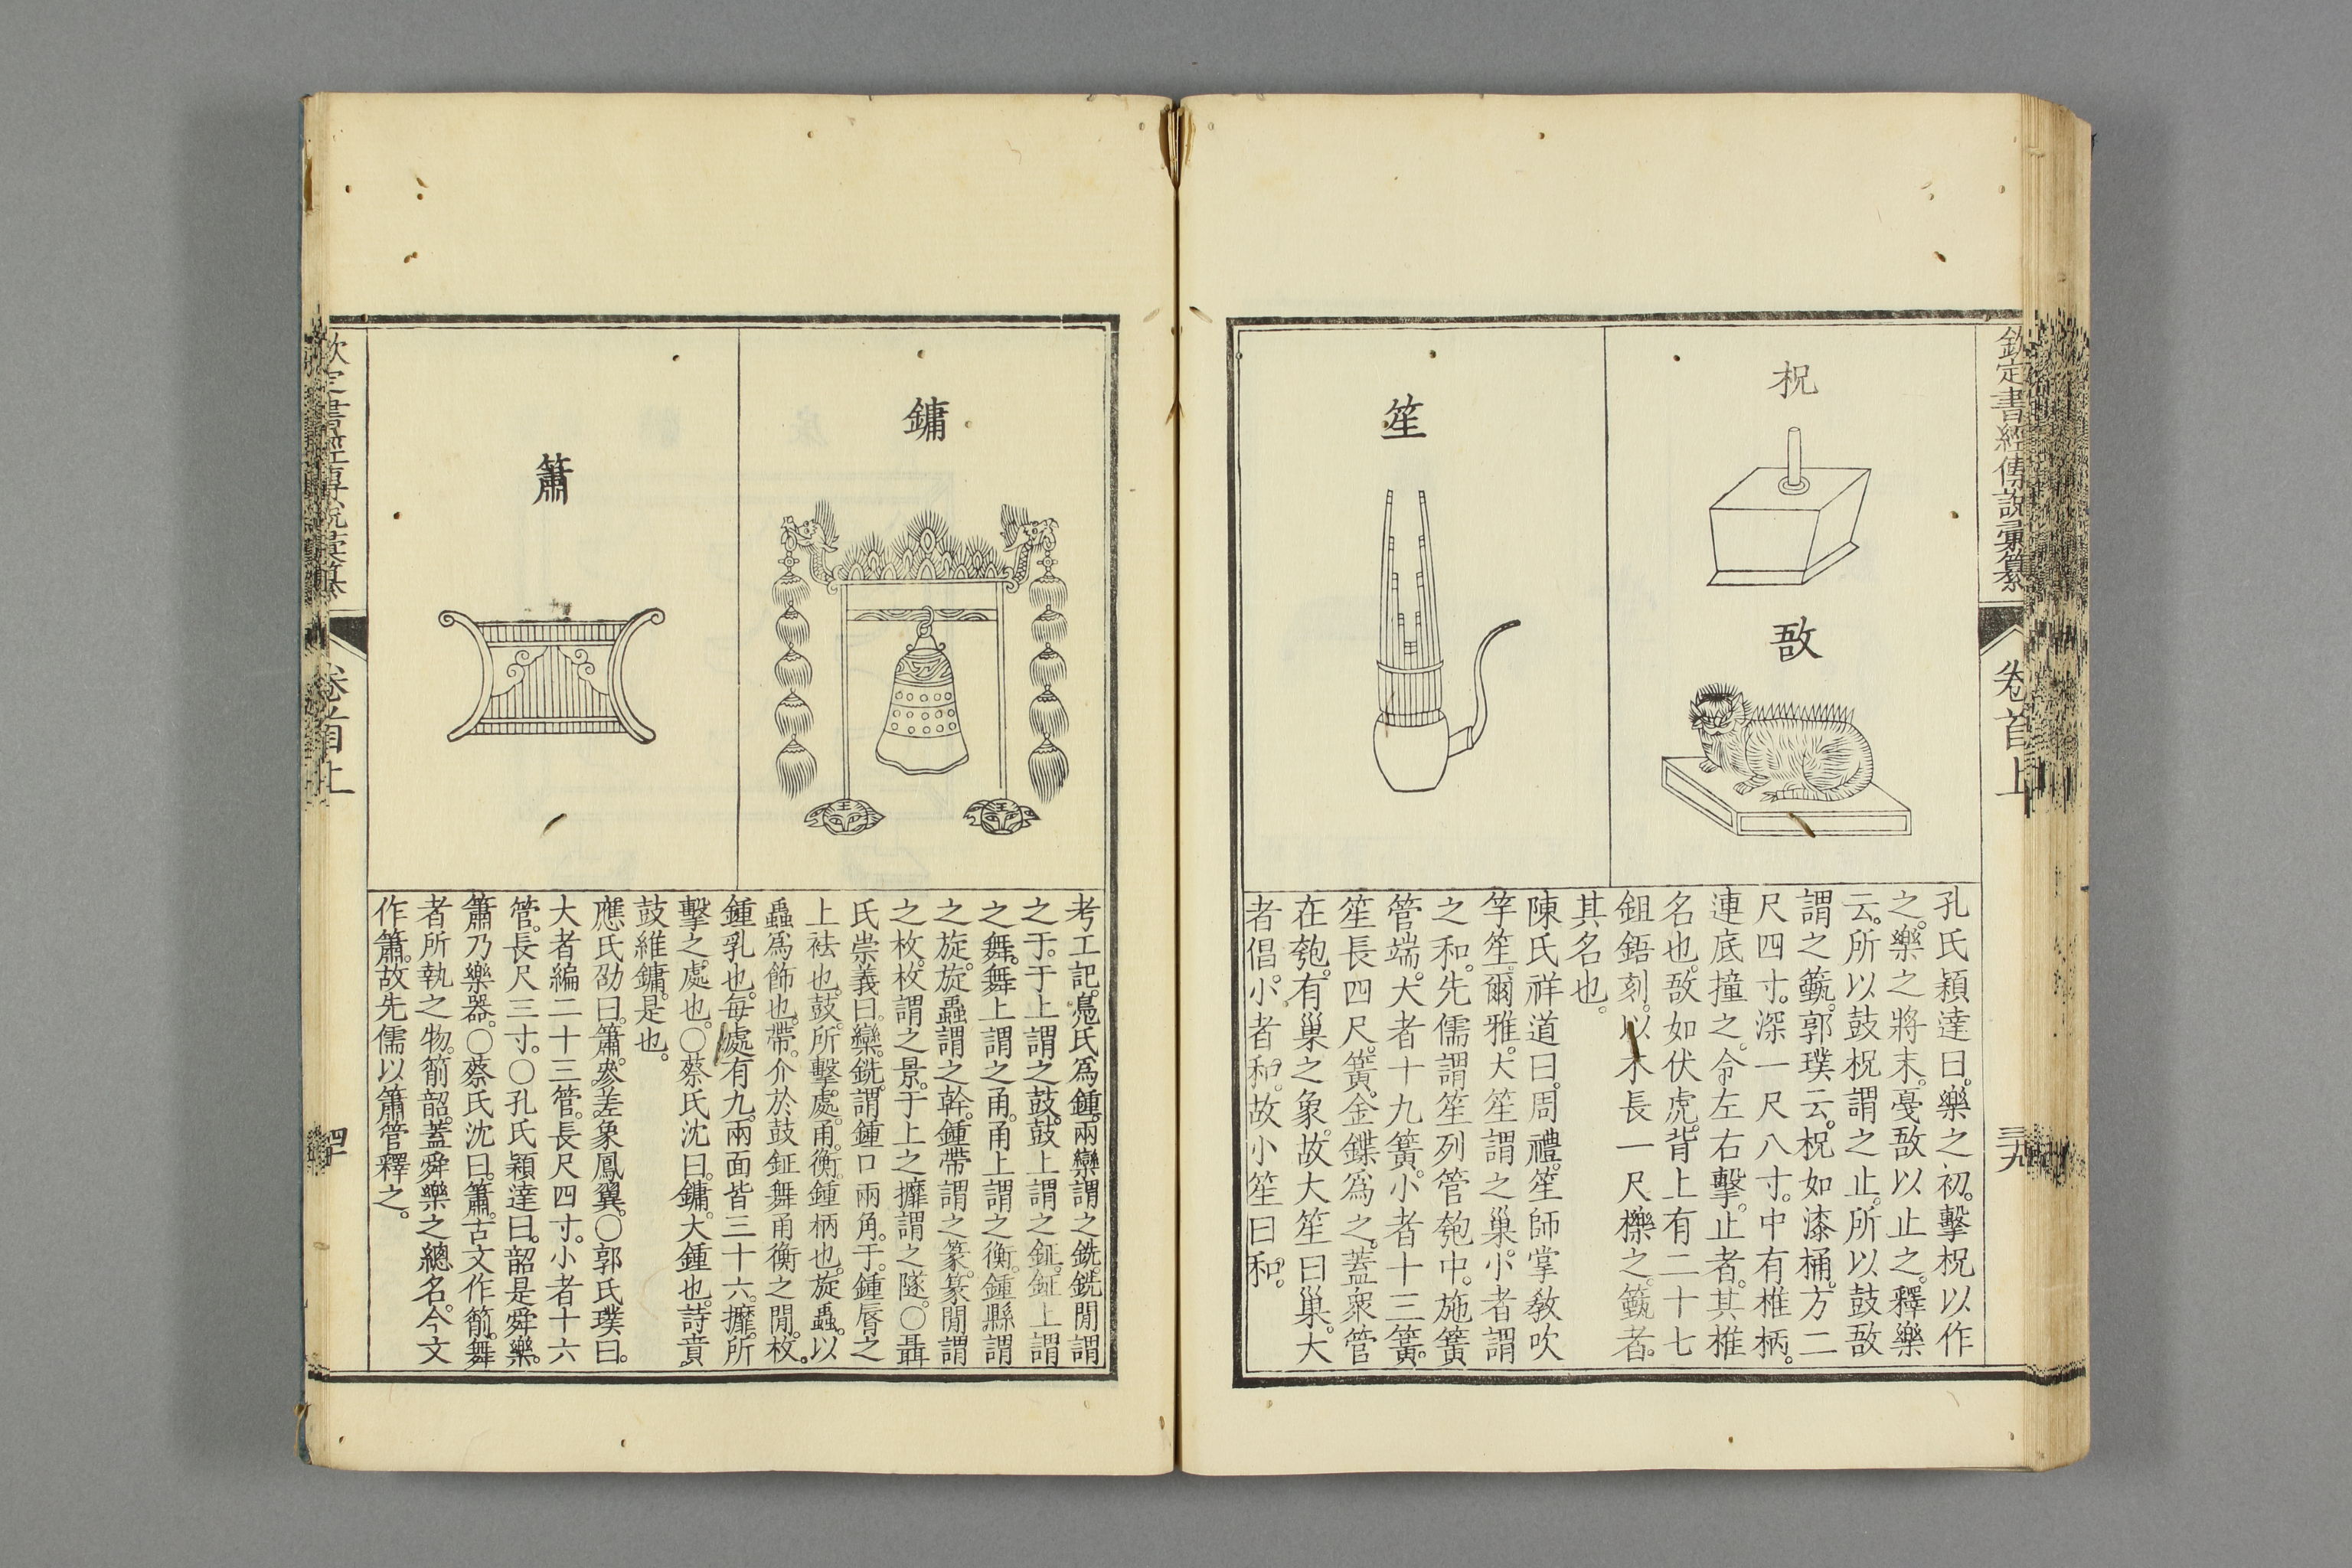 欽定書經傳說彙纂
卷首上
三九
柷
敔
笙
孔氏穎達曰。樂之初。擊柷以作
之。樂之將末。戛敔以止之。釋樂
云。所以鼓柷謂之止。所以鼓敔
謂之籈。郭璞云。柷如漆桶。方二
尺四寸。深一尺八寸。中有椎柄。
連底撞之。令左右擊。止者。其椎
名也。敔如伏虎。背上有二十七
鉏鋙刻。以木長一尺櫟之。籈者。
其名也。
陳氏祥道曰。周禮。笙師掌敎吹
竽笙。爾雅。大笙謂之巢。小者謂
之和。先儒謂笙列管匏中。施簧
管端。大者十九簧。小者十三簧。
笙長四尺。簧。金鍱爲之。蓋衆管
在匏。有巢之象。故大笙曰巢。大
者倡。小者和。故小笙曰和。
鏞
簫
考工記。鳧氏爲鍾。兩欒謂之銑。銑閒謂
之于。于上謂之鼓。鼓上謂之鉦。鉦上謂
之舞。舞上謂之甬。甬上謂之衡。鍾縣謂
之旋。旋蟲謂之幹。鍾帶謂之篆。篆閒謂
之枚。枚謂之景。于上之攠謂之隧。○聶
氏崇義曰。欒。銑。謂鍾口兩角。于。鍾脣之
上袪也。鼓。所擊處。甬。衡。鍾柄也。旋蟲。以
蟲爲飾也。帶。介於鼓鉦舞甬衡之閒。枚。
鍾乳也。每處有九。兩面皆三十六。攠。所
擊之處也。○蔡氏沈曰。鏞。大鍾也。詩賁
鼓維鏞。是也。
應氏劭曰。簫。參差。象鳳翼。○郭氏璞曰。
大者編二十三管。長尺四寸。小者十六
管。長尺三寸。○孔氏穎達曰。韶是舜樂。
簫乃樂器。○蔡氏沈曰。簫。古文作箾。舞
者所執之物。箾韶。蓋舜樂之總名。今文
作簫。故先儒以簫管釋之。
欽定書經傳說彙纂
卷首上
四十